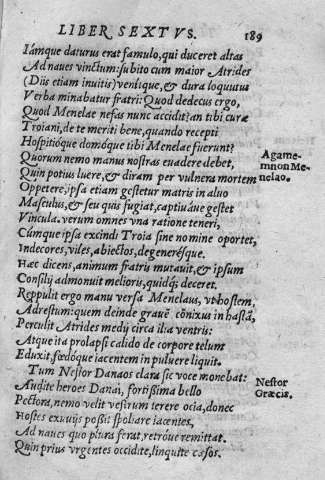 LIBER SEXTVS. 189
Iámque daturus erat famulo, qui duceret altas
Ad naues vinctum: subito cum maior Atrides
(Diis etiam inuitis) venitque, & dura loquutus
Verba minabatur fratri: Quod dedecus ergo,
Quod Menelae nefas nunc accidit? an tibi curæ
Troiani, de te meriti bene, quando recepti
Hospitióque domóque tibi Menelae fuerunt?
Quorum nemo manus nostras euadere debet,
Agame-
mnon Me-
nelao.
Quin potius luere, & diram per vulnera mortem
Oppetere, ipsa etiam gestetur matris in aluo
Masculus, & seu quis fugiat, captiuáue gestet
Vincula. verum omnes vna ratione teneri,
Cúmque ipsa excindi Troia sine nomine oportet,
Indecores, viles, abiectos, degenerésque.
Hæc dicens, animum fratris mutauit, & ipsum
Consilij admonuit melioris, quidq; deceret.
Reppulit ergo manu versa Menelaus, vt hostem,
Adrestum: quem deinde graue cōnixus in hastā,
Perculit Atrides medij circa ilia ventris:
Atque ita prolapsi calido de corpore telum
Eduxit, fœdóque iacentem in puluere liquit.
Tum Nestor Danaos clara sic voce monebat:
Nestor
Græcis.
Audite heroes Danai, fortißima bello
Pectora, nemo velit vestrum terere ocia, donec
Hostes exuuijs poßit spoliare iacentes,
Ad naues quo plura ferat, retróue remittat.
Quin prius vrgentes occidite, linquite cæsos.